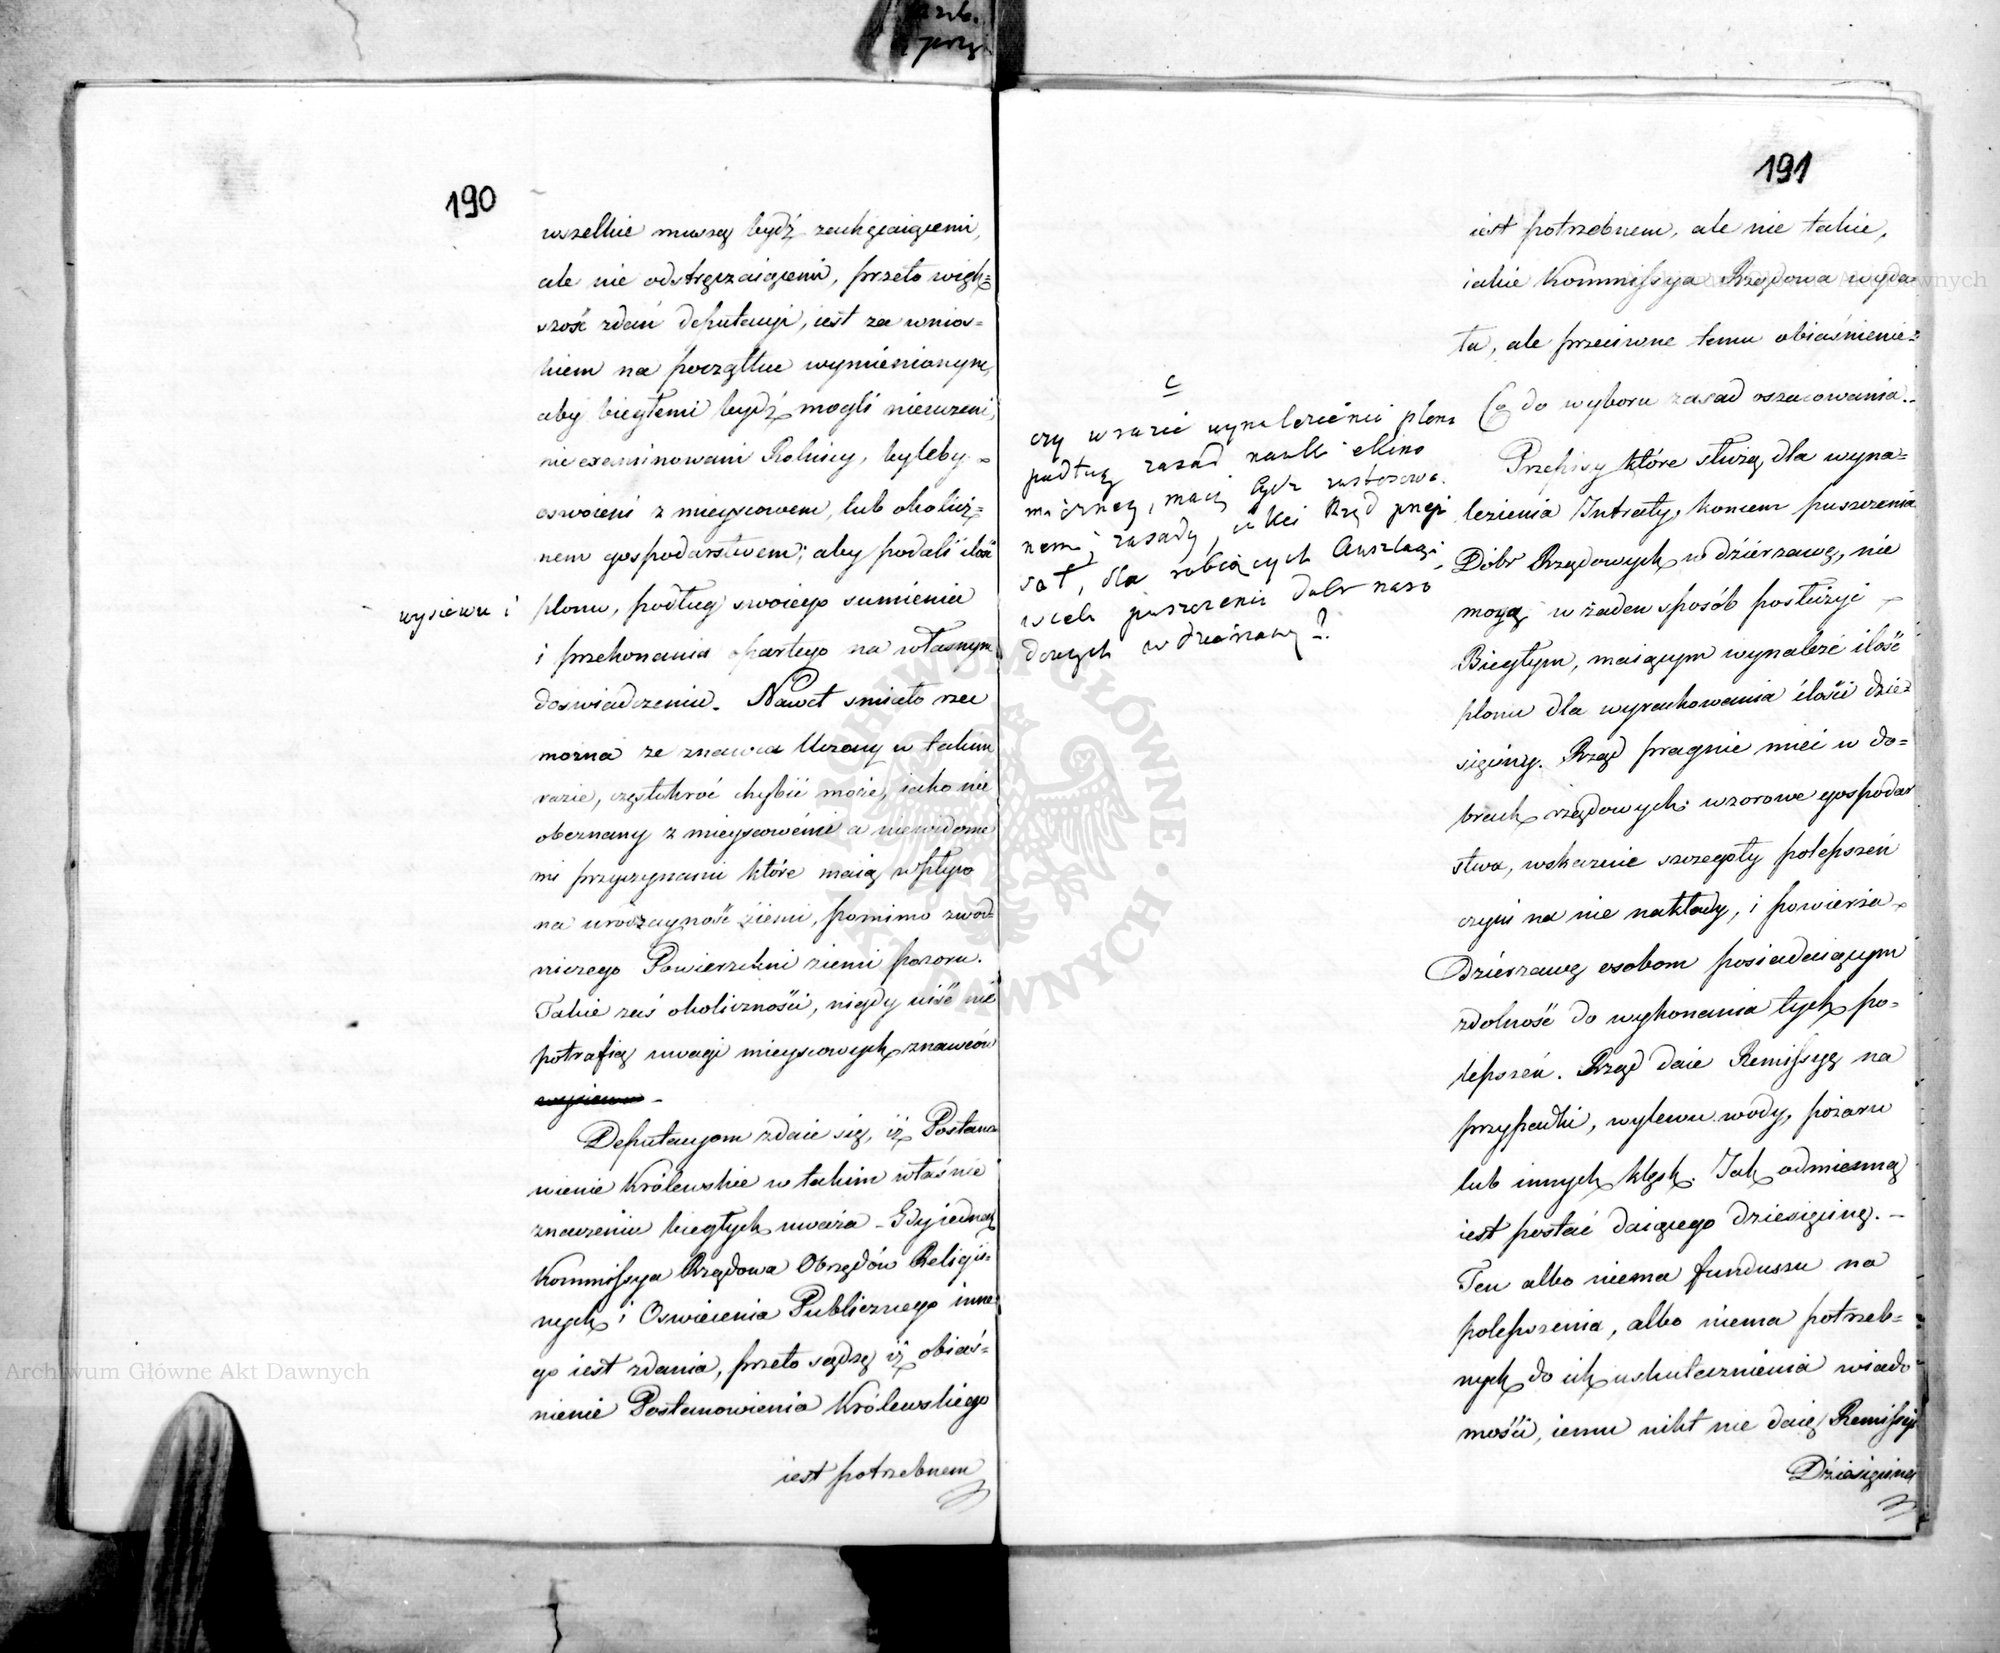 190
wszelkie muszą bydź zachęcaiącemi,
ale nie odstręczaiącemi, przeto więk=
szość zdań deputacyi, iest za wnios=
kiem na początku wymienionym,
aby biegłemi bydź mogli nieuczeni,
nie examinowani Rolnicy, byleby
oswoieni z mieyscowem, lub okolicz=
nem gospodarstwem; aby podali ilość
wysiewu i
plonu, podług swoiego sumienia
i przekonania opartego na własnym
doświadczeniu. Nawet smiało rzec
można że znawca Uczony w takim
razie, częstokroć chybić może, iako nie
obeznany z mieyscowémi a niewidome
mi przyczynami które maią wpływ
na urodzayność ziemi, pomimo zwod=
niczego Powierzchni ziemi pozoru.
Takie zaś okoliczności, nigdy uiść nie
potrafią uwagi mieyscowych znawców
wysiewu -
Deputacyom zdaie się, iż Postano
wienie Królewskie w takim właśnie
znaczeniu biegłych uważa - Gdy iednak
Kommissya Rządowa Obrzędów Religii=
nych i Oswiecenia Publicznego inne
go iest zdania, przeto sądzę iż obiaś=
nienie Postanowienia Królewskiego
iest potrzebnem
191
iest potrzebnem, ale nie takie,
iakie Kommissya Rządowa wyda=
ła, ale przeciwne temu obiaśnienie=
Co do wyboru zasad oszacowania.
c
czy w razie wynalezienia plonu
podług zasad nauki ekono
miczney, maią bydź zastosowa.
nemi zasady, iakie Rząd przepi
sał, dla robiących Anszlagi
w celu puszczenia dobr naro
dowych w dzierżawę?
Przepisy które służą dla wyna=
lezienia Intraty, końcem puszczenia
Dóbr Rządowych w dzierżawę, nie
mogą w żaden sposób posłużyć
Biegłym, maiącym wynaleźć ilość
plonu dla wyrachowania ilości dzie=
sięciny. Rząd pragnie mieć w do=
brach rządowych wzorowe gospodar
stwa, wskazuie szczegoły polepszeń
czyni na nie nakłady, i powierza
Dzierżawę osobom posiadaiącym
zdolność do wykonania tych po=
lepszeń. Rząd daie Remissyę na
przypadki, wylewu wody, pożaru
lub innych klęsk. Jak odmienną
iest postać daiącego dziesięcinę. -
Ten albo niema funduszu na
polepszenia, albo niema potrzeb=
nych do ich uskutecznienia wiado
mości, iemu nikt nie daie Remissyi
Dziesięciney
Archiwum Główne Akt Dawnych